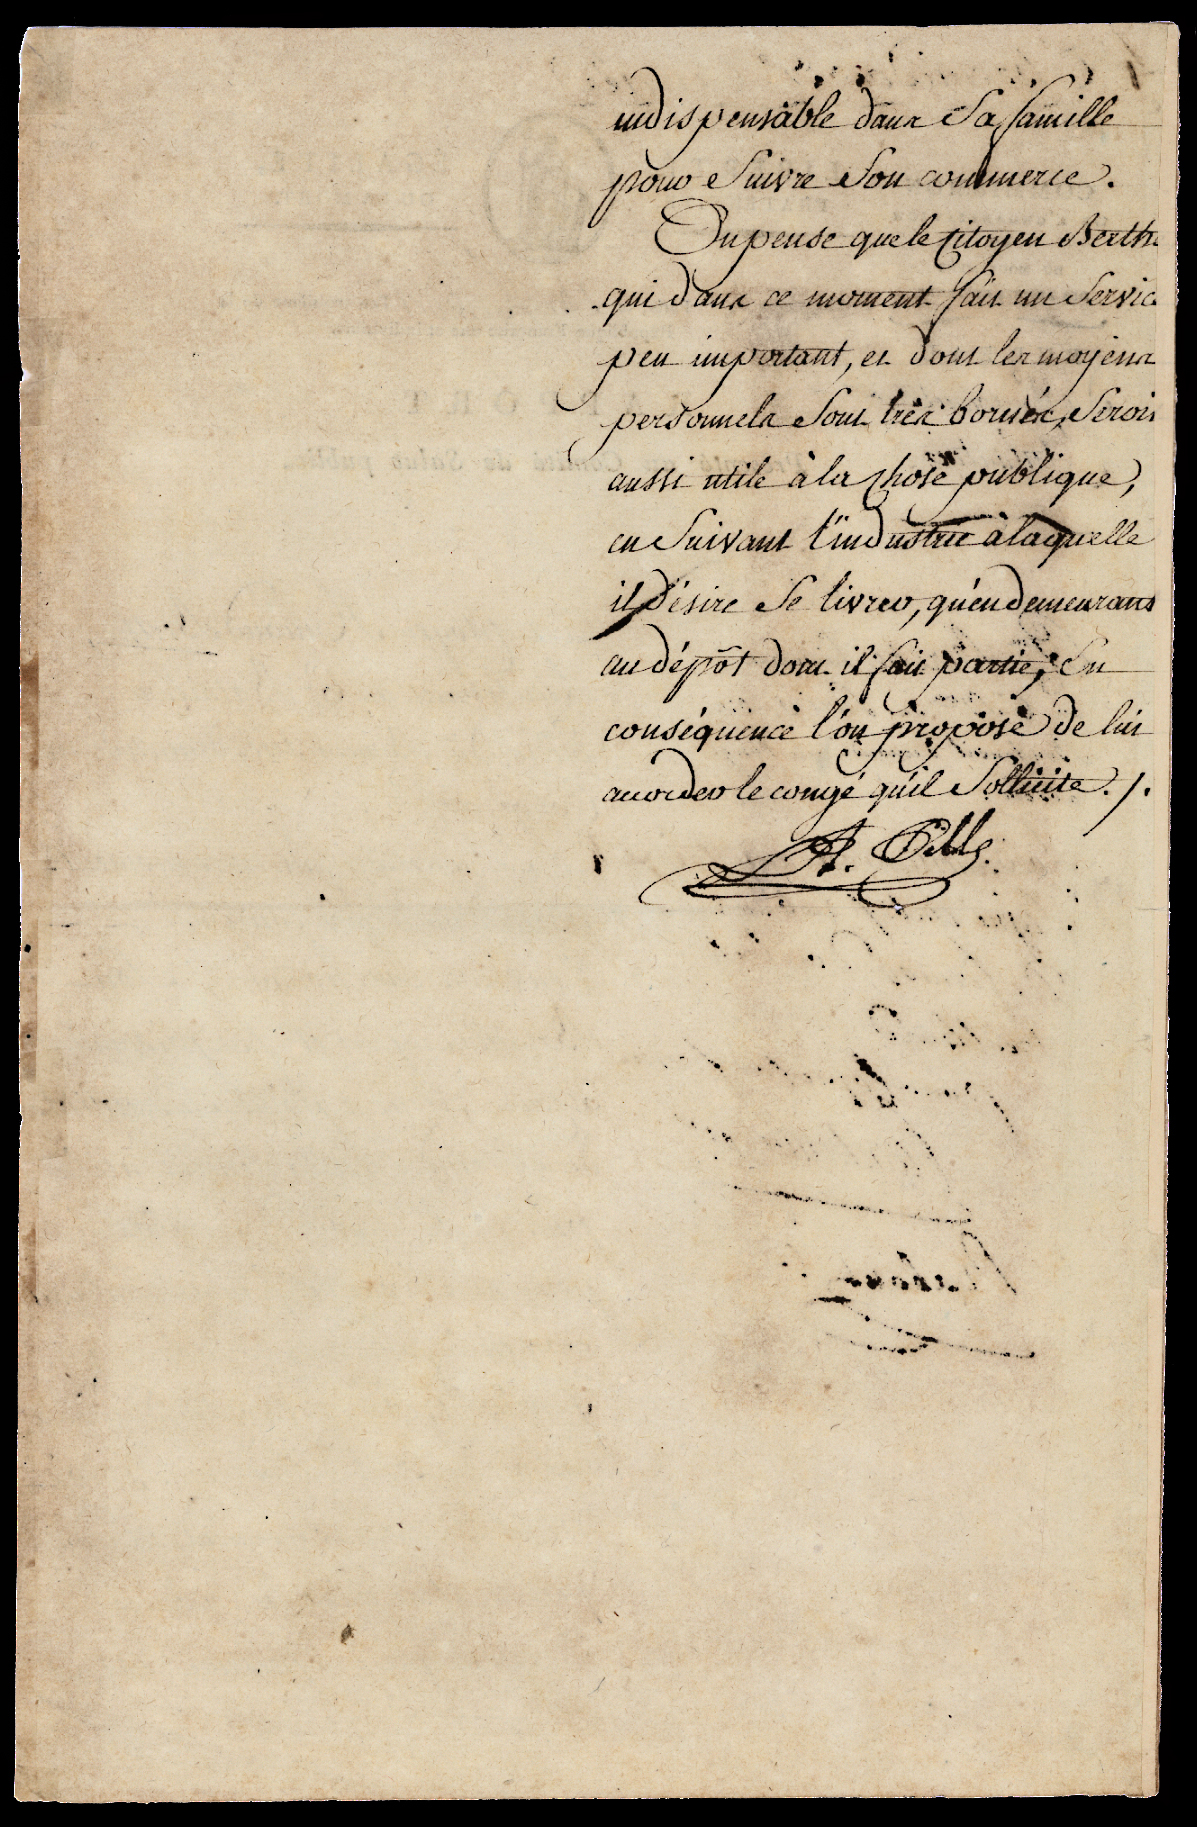 indispensable dans Sa famille
pour Suivre Son commerce.
On pense que le Citoyen Berth
qui dans ce moment fait un Servic
peu important, et dont les moyens
personnels Sont très bornés, Seroit
aussi utile à la chose publique,
en Suivant l'industrie à laquelle
il désire Se livrer, qu'en demeurant
au dépôt dont il fait partie; En
conséquence l'on propose de lui
accorder le congé qu'il Sollicite ./.
A. Pille